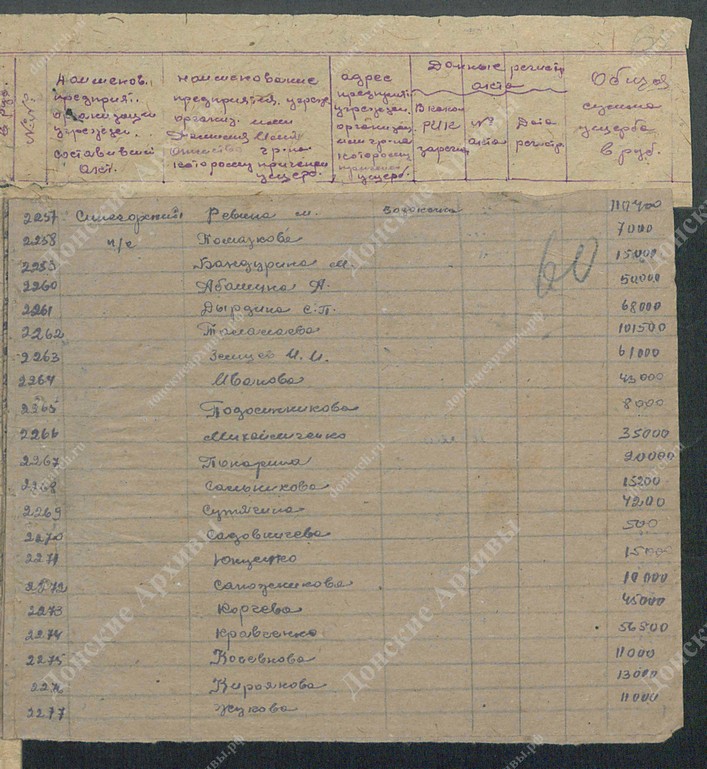 №№
Наименов. предприят. организации учрежден. составивший акт.
Наименование предприятия, учрежд. организ. или гр-на которому причинен ущерб.
адрес предприят. учрежден. организац. или гр-на которому причинен ущерб.
Данные регистр. акта
В каком РИК зарегис.
№ акта
Дата регистр.
Общая сумма ущерба в руб.
60
2257 Синегорский Ревина М. 117400
2258 п/с Комазкова 7000
2259 Бандурина М. 15000
2260 Абашина А. 50000
2261 Дырдина С.П. 68000
2262 101500
2263 Земцов И.И. 61000
2264 Иванова 43000
2265 Подосинникова 8000
2266 Михайличенко 35000
2267 Понарина 20000
2268 Сальникова 15200
2269 Сутягина 4200
2270 Садовничева 500
2271 Ющенко 1500
2272 Сапожникова 10000
2273 Корчева 45000
2274 Кравченко 56500
2275 11000
2276 Кирьякова 13000
2277 Жукова 11000
Донские Архивы
donarch.ru
донскиеархивы.рф